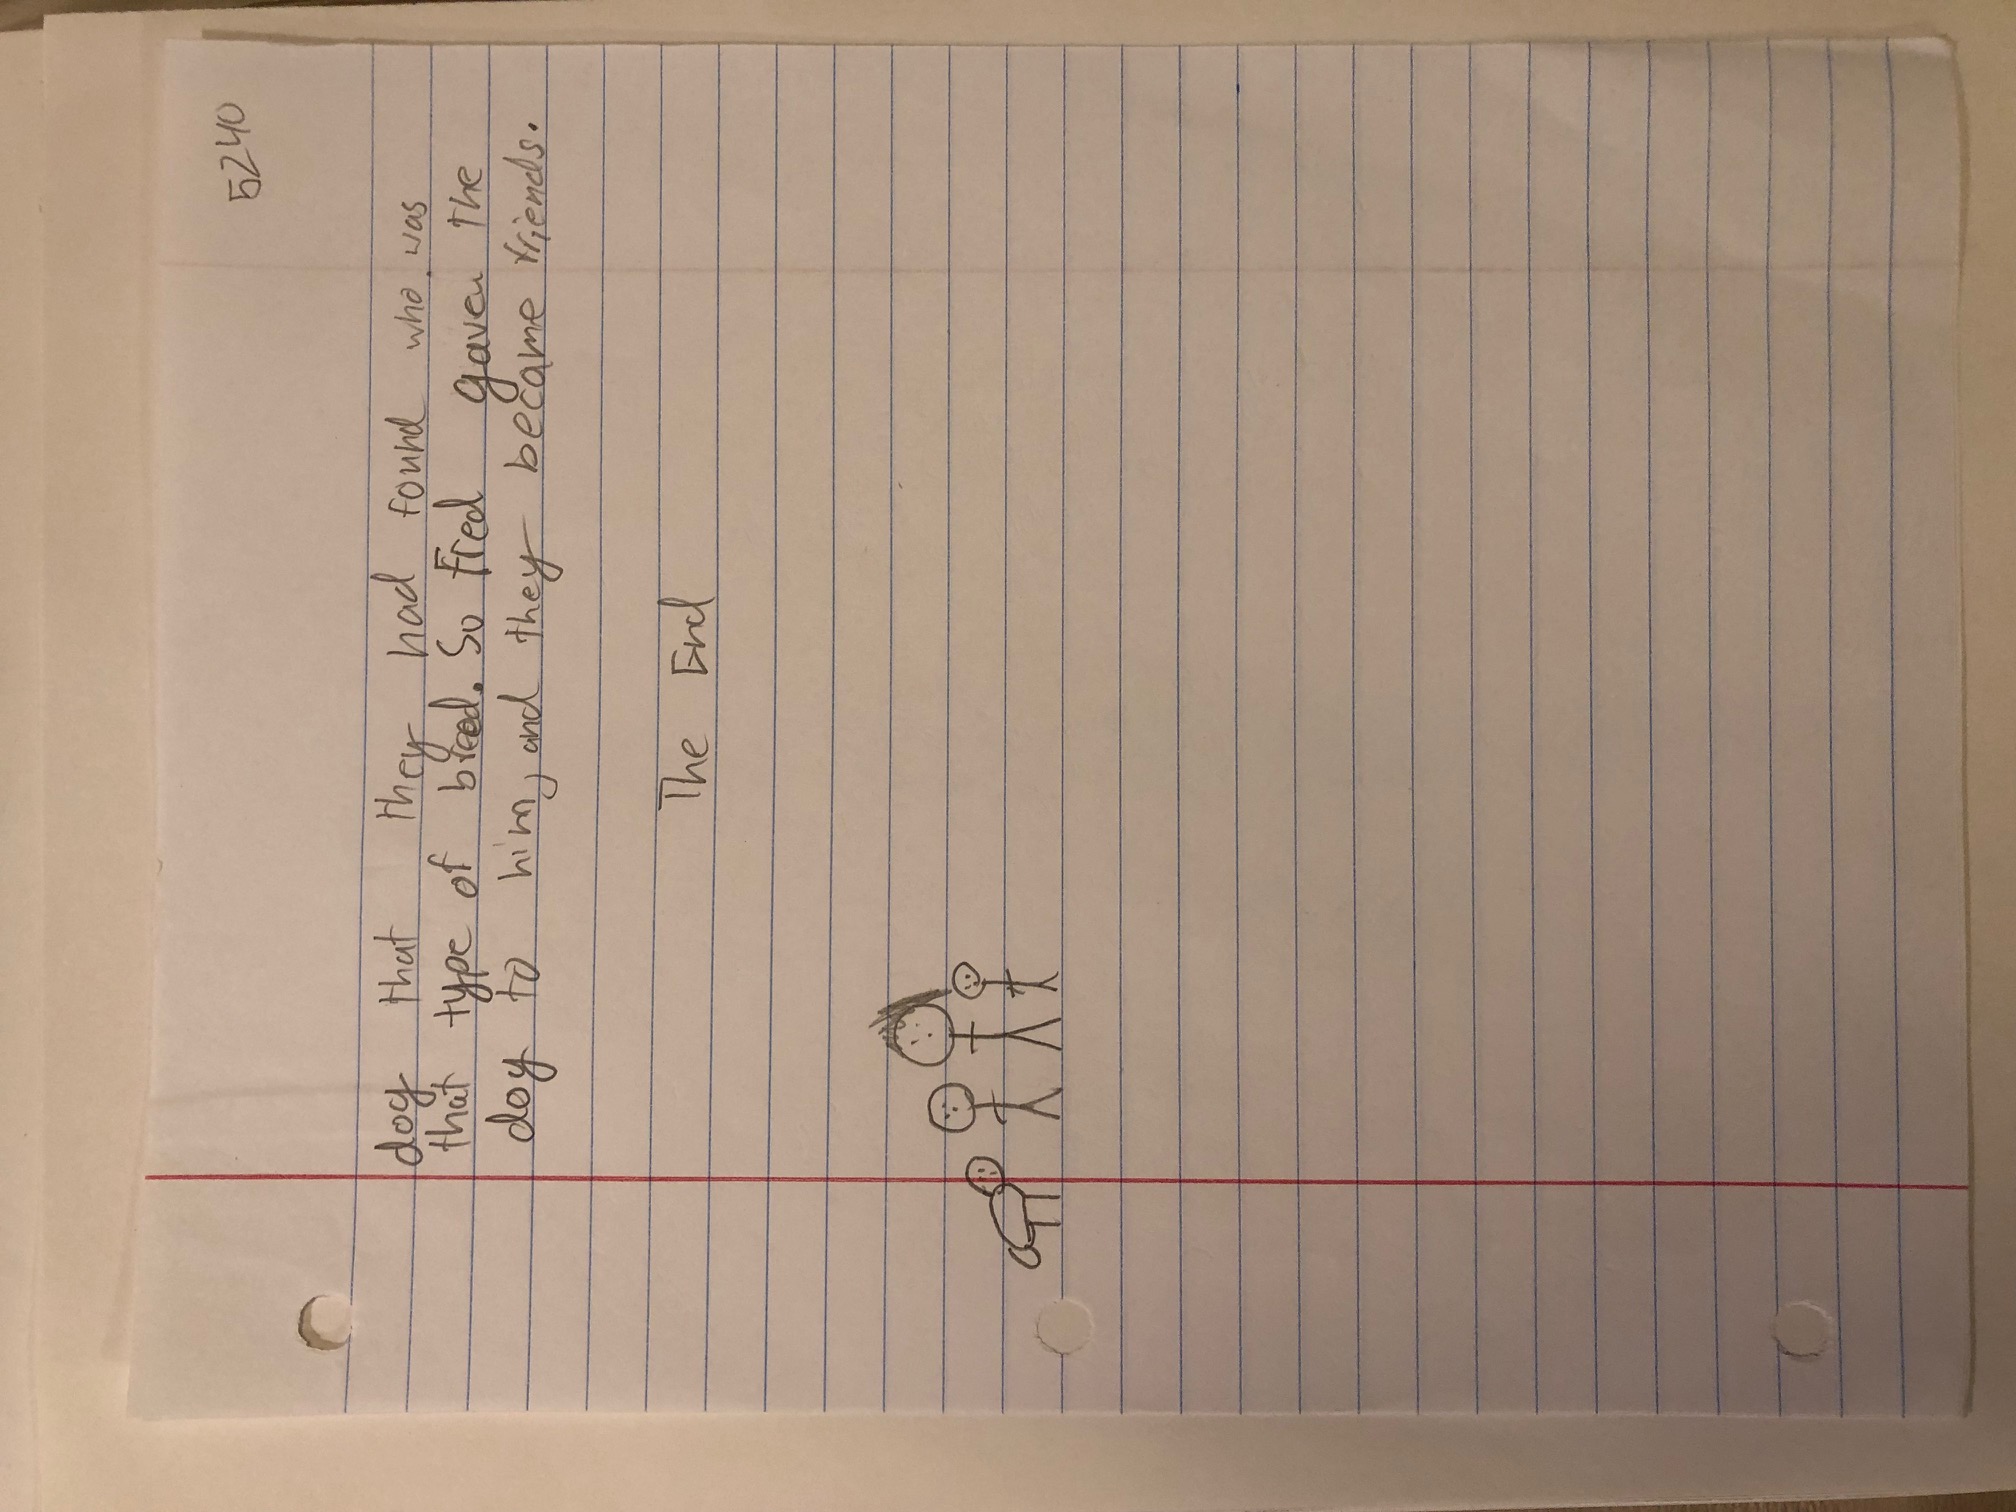 5240
dog that they had found who was
that type of breed. So Fred gaven the
dog to him, and they became friends.
The End